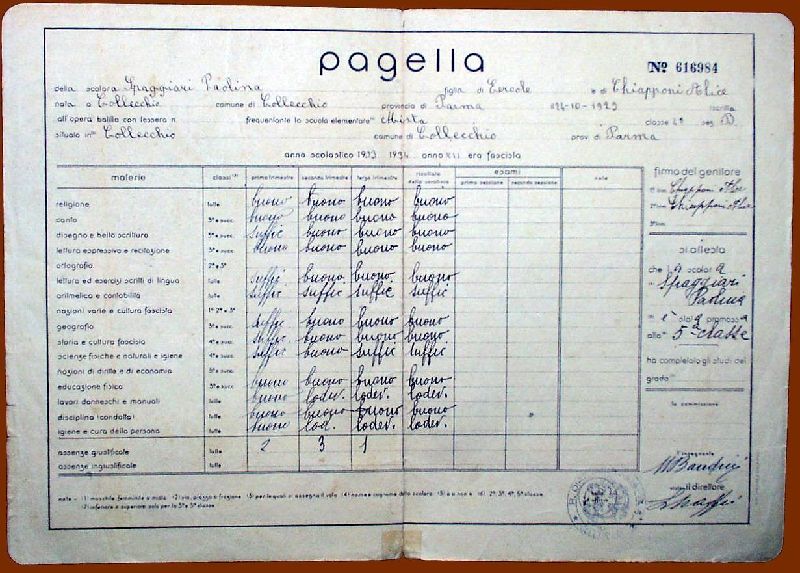 pagella
Nº 616984
della scolara Spaggiari Paolina figlia di Ercole e di Chiapponi Alice
nata a Collecchio comune di Collecchio provincia di Parma 24-10-1923 iscritta
all'opera balilla con tessera n. frequentante la scuola elementare Mista classe 4ª sez. D
situata in Collecchio comune di Collecchio prov. di Parma
anno scolastico 1933 1934 anno XII era fascista
materie classi primo trimestre secondo trimestre terzo trimestre risultato dello scrutinio esami prima sessione seconda sessione note
religione tutte buono buono buono buono
canto 3ª e succ. buono buono buono buono
disegno e bella scrittura 3ª e succ. suffic buono buono buono
lettura espressiva e recitazione 3ª e succ. buono buono buono buono
ortografia 2ª e 3ª
lettura ed esercizi scritti di lingua tutte suffic buono buono buono
aritmetica e contabilità tutte suffic suffic suffic suffic
nozioni varie e cultura fascista 1ª 2ª e 3ª
geografia 3ª e succ. suffic buono buono buono
storia e cultura fascista 4ª e succ. suffic buono buono buono
scienze fisiche e naturali e igiene 4ª e succ. suffic buono suffic suffic
nozioni di diritto e di economia 5ª e succ.
educazione fisica tutte buono buono buono buono
lavori donneschi e manuali tutte buono lodev. lodev. lodev.
disciplina (condotta) tutte buono buono buono buono
igiene e cura della persona tutte buono lod. lodev. lodev.
assenze giustificate tutte 2 3 1
assenze ingiustificate tutte
firma del genitore
Chiapponi Alice
Chiapponi Alice
si attesta
che la scolara
Spaggiari
Paolina
è stata promossa
alla 5ª classe
ha completato gli studi del
grado
la commissione
l'insegnante
il direttore
note - 1) maschile femminile o mista 2) via, piazza o frazione 3) per le quali si assegna il voto 4) nome e cognome dello scolaro 5) è o non è 6) 2ª, 3ª, 4ª, 5ª classe
7) inferiore o superiore solo per la 3ª e 5ª classe